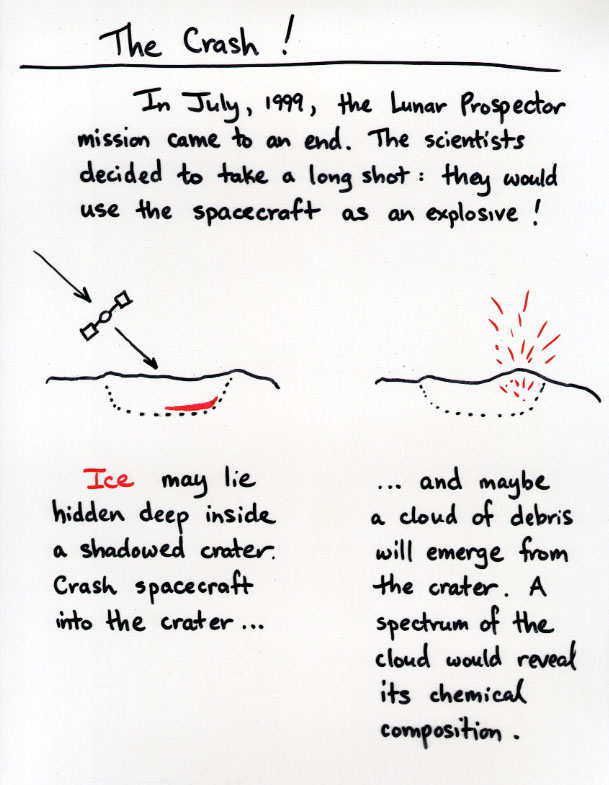 The Crash !
In July, 1999, the Lunar Prospector
mission came to an end. The scientists
decided to take a long shot : they would
use the spacecraft as an explosive !
Ice may lie
hidden deep inside
a shadowed crater.
Crash spacecraft
into the crater ...
... and maybe
a cloud of debris
will emerge from
the crater. A
spectrum of the
cloud would reveal
its chemical
composition.